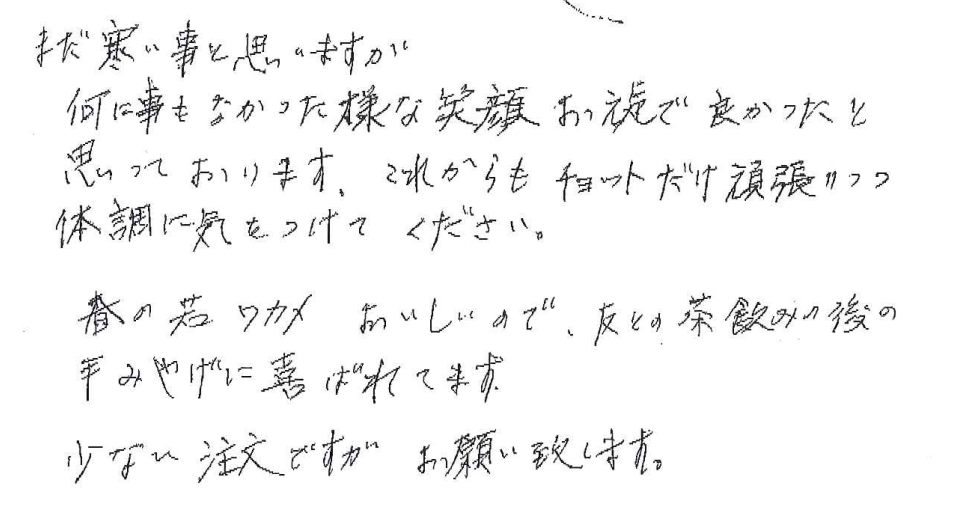 まだ寒い事と思いますが
何に事もなかった様な笑顔お元気で良かったと
思っております。これからもチョットだけ頑張りつつ
体調に気をつけてください。
春の若ワカメおいしいので、友との茶飲みの後の
手みやげに喜ばれてます。
少ない注文ですがお願い致します。